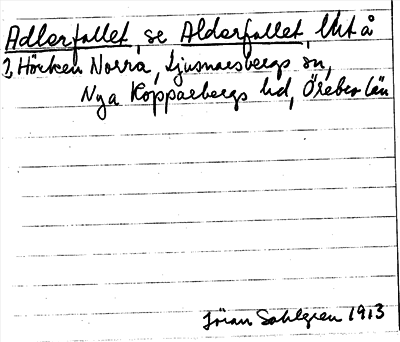 Adlerfallet, se Alderfallet, Utå
2, Hörken Norra, Ljusnarsbergs sn,
Nya Kopparbergs hd, Örebro län
Jöran Sahlgren 1913